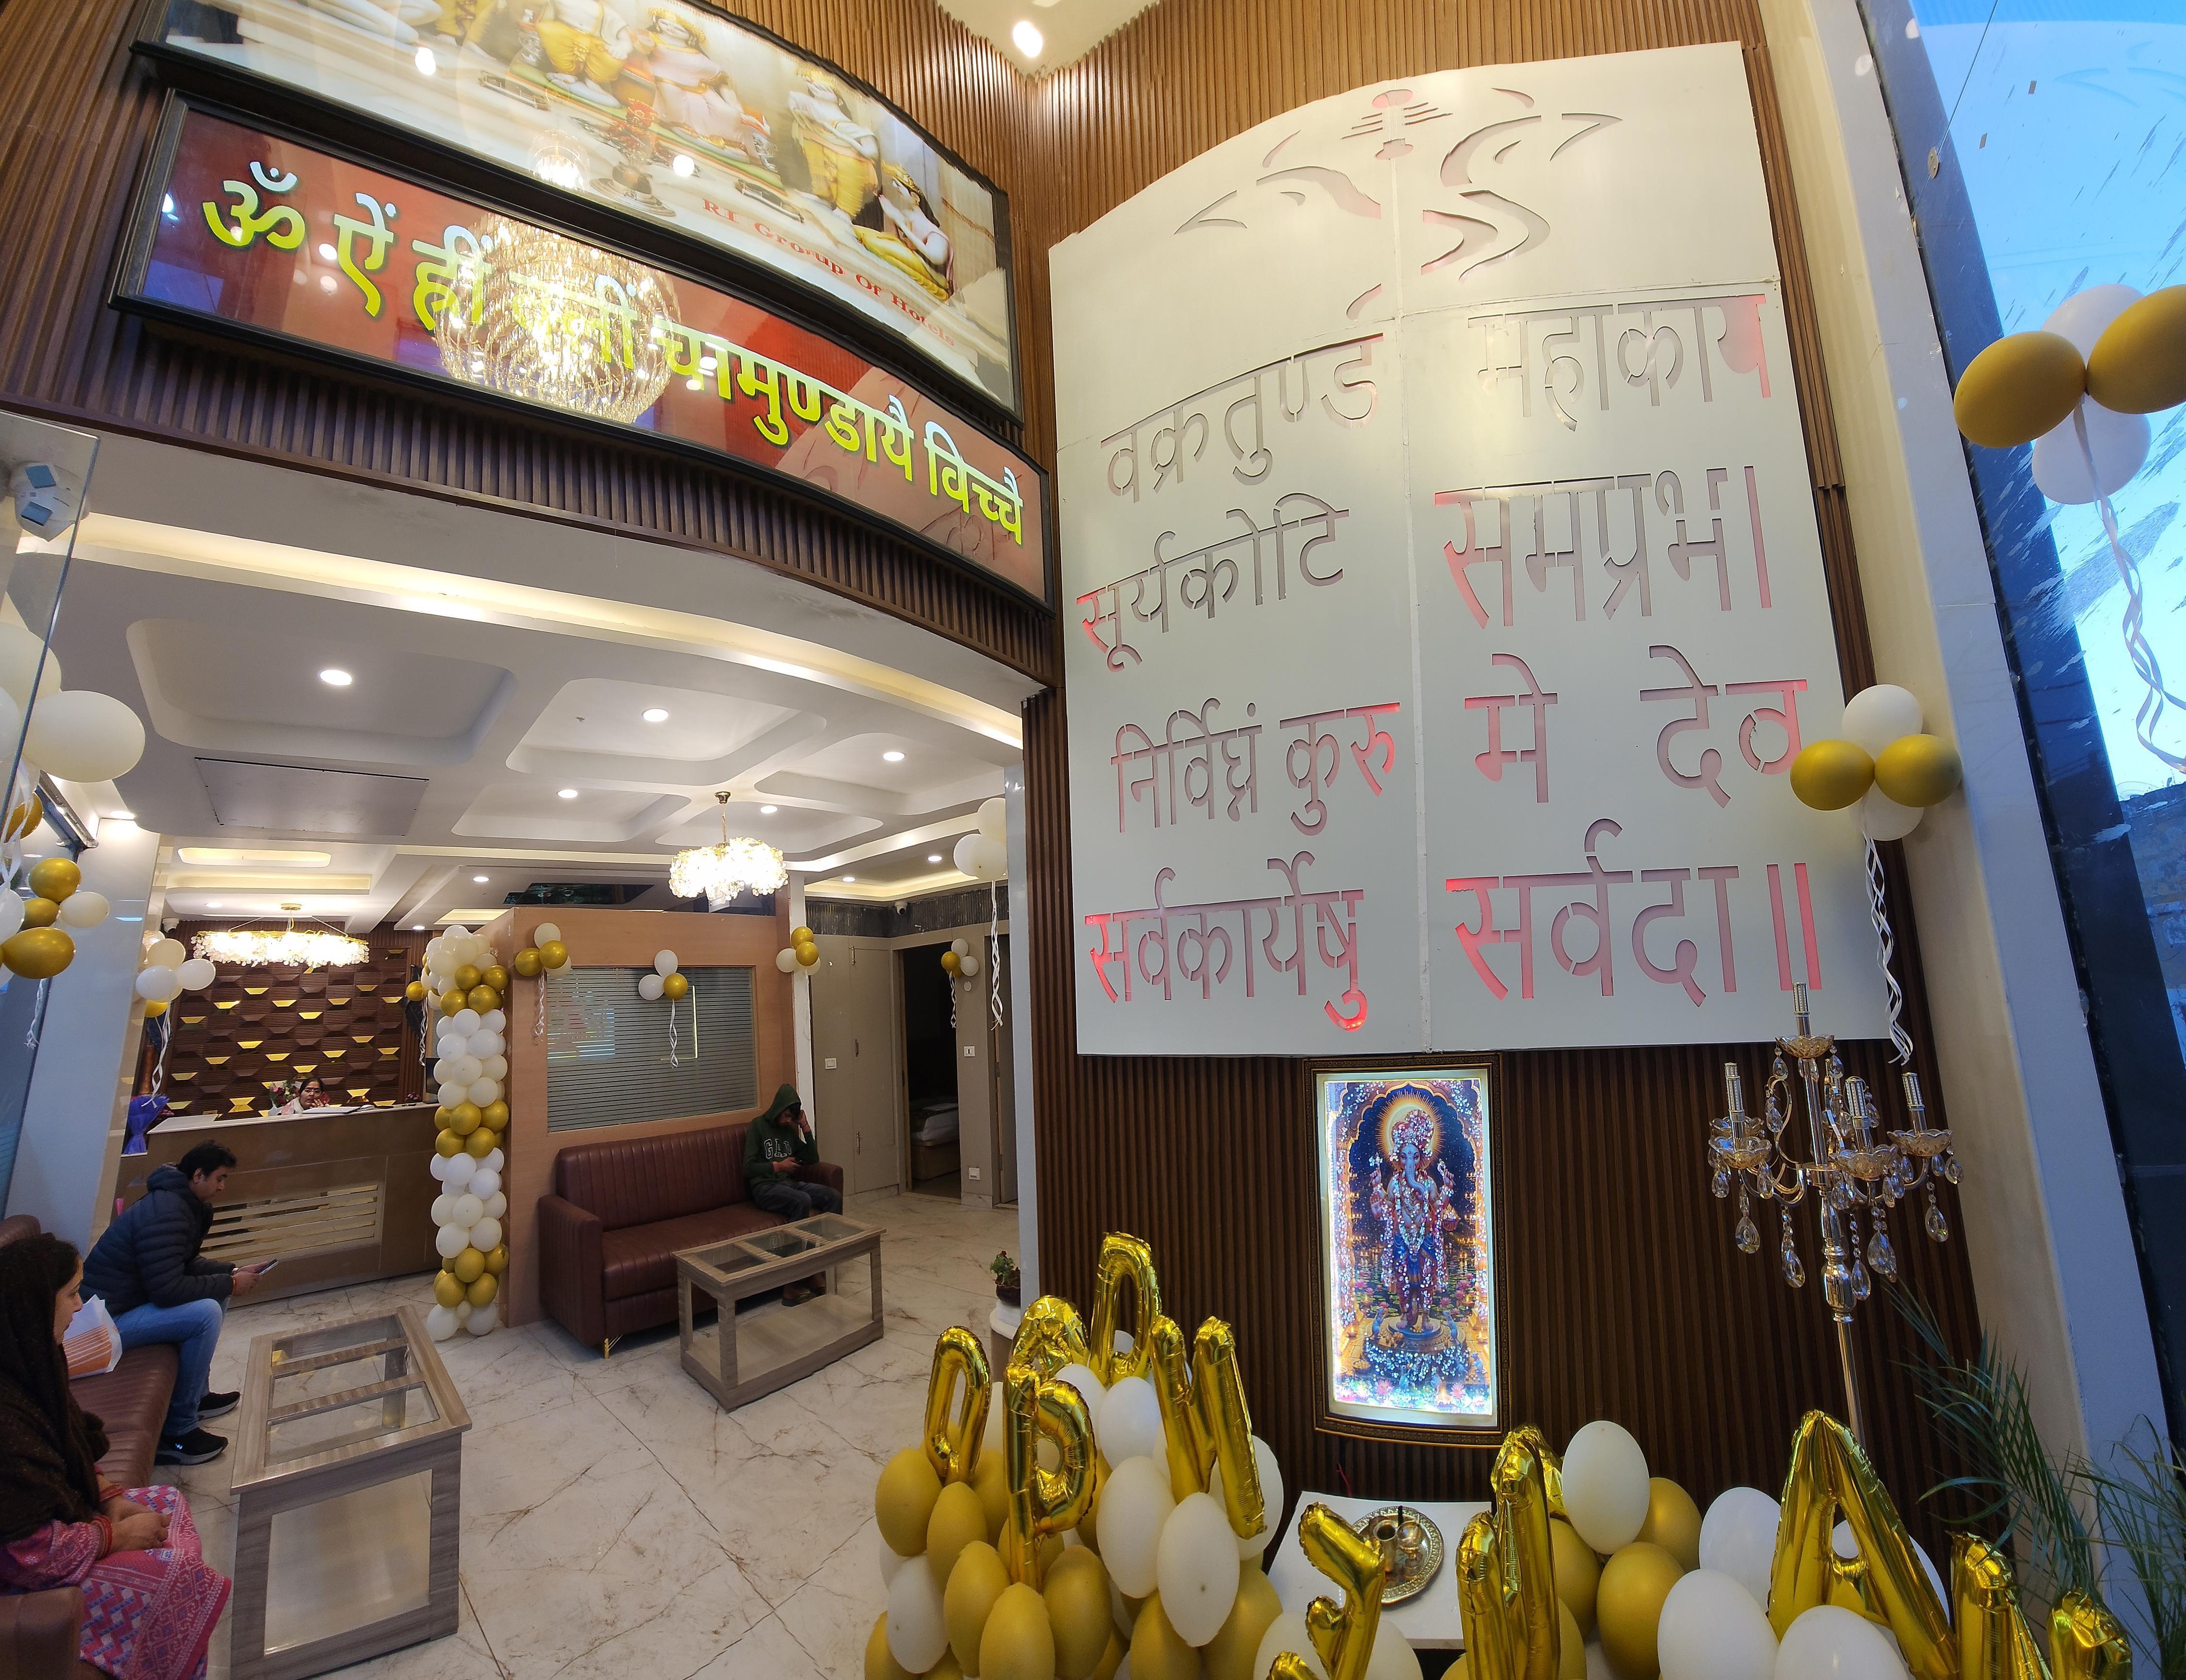 RI Group Of Hotels
ॐ ऐं ह्रीं क्लीं चामुण्डायै विच्चै
वक्रतुण्ड महाकाय
सूर्यकोटि समप्रभ।
निर्विघ्नं कुरु मे देव
सर्वकार्येषु सर्वदा॥
GAP